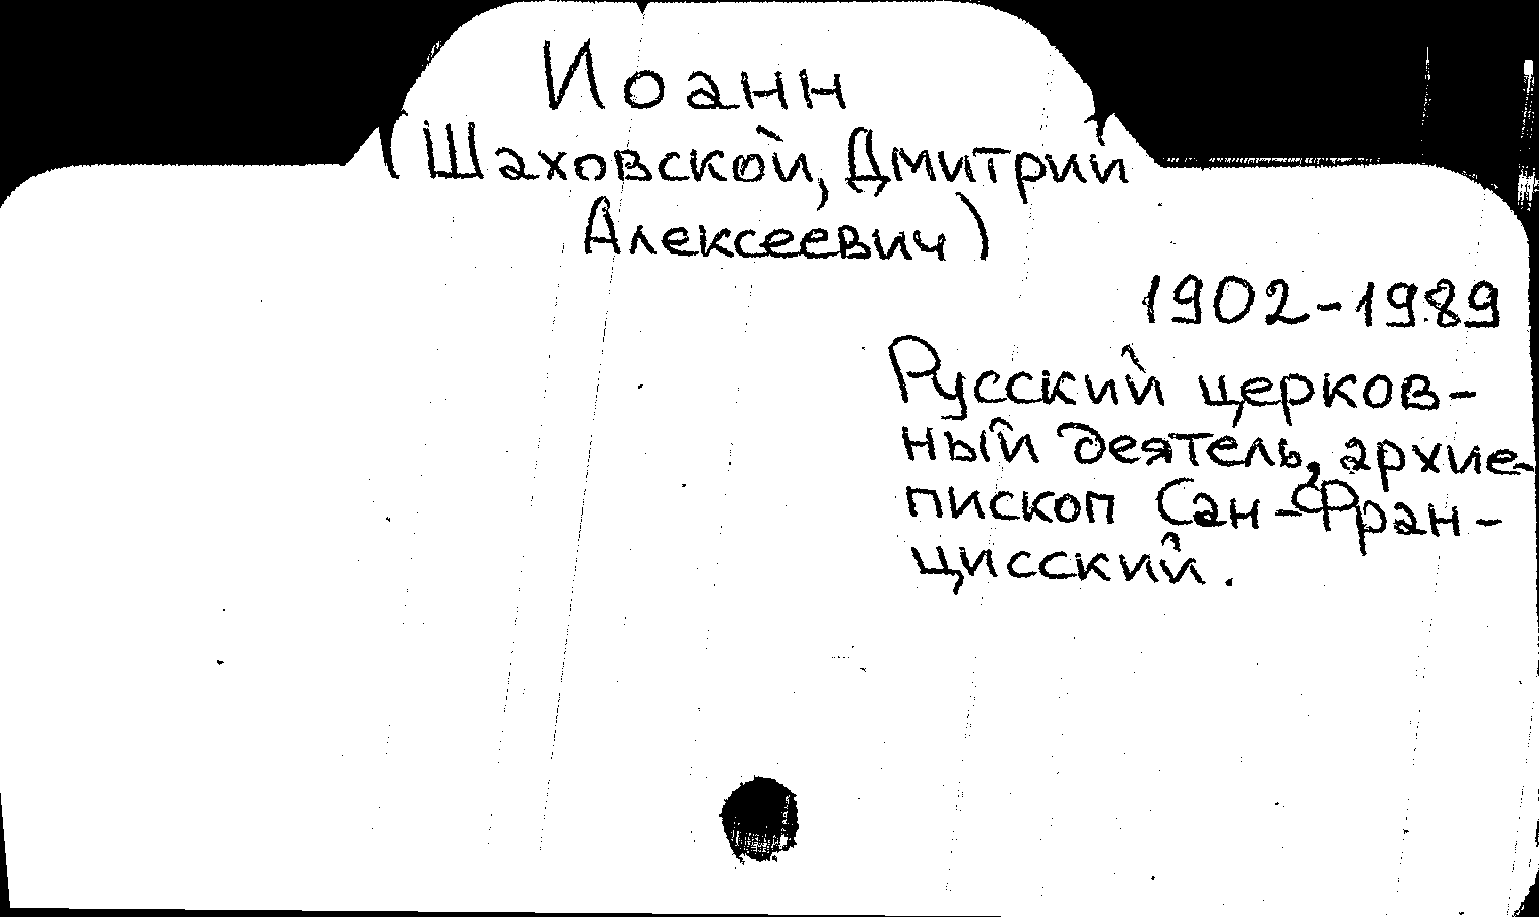 Иоанн
(Шаховской, Дмитрий
Алексеевич)
1902-1989
Русский церков-
ный деятель, архие-
пископ Сан-Фран-
цисский.